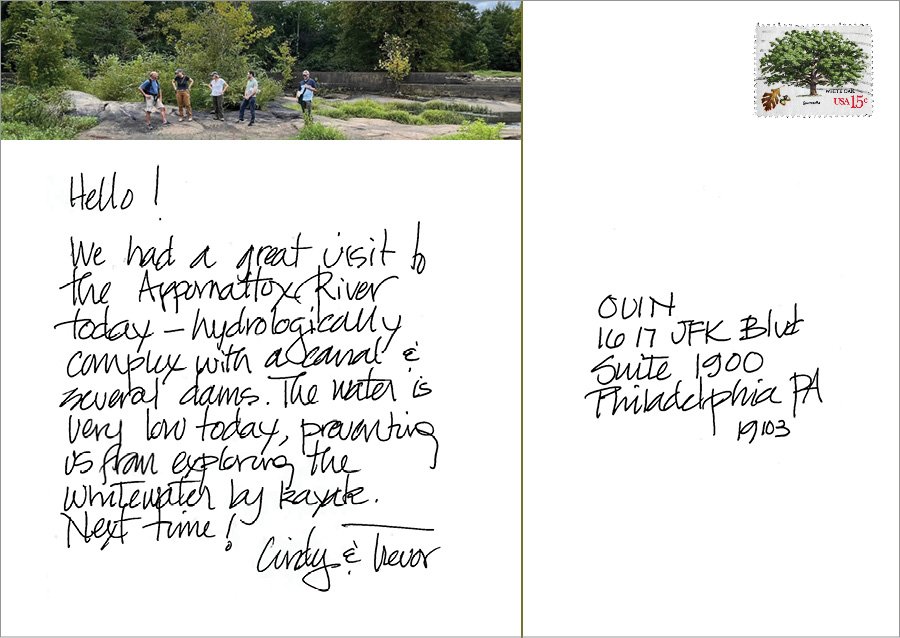 Hello!
We had a great visit to
the Appomattox River
today – hydrologically
complex with a canal &
several dams. The water is
very low today, preventing
us from exploring the
whitewater by kayak.
Next time!
Cindy & Trevor
WHITE OAK
USA 15c
OLIN
1617 JFK Blvd
Suite 1900
Philadelphia PA
19103